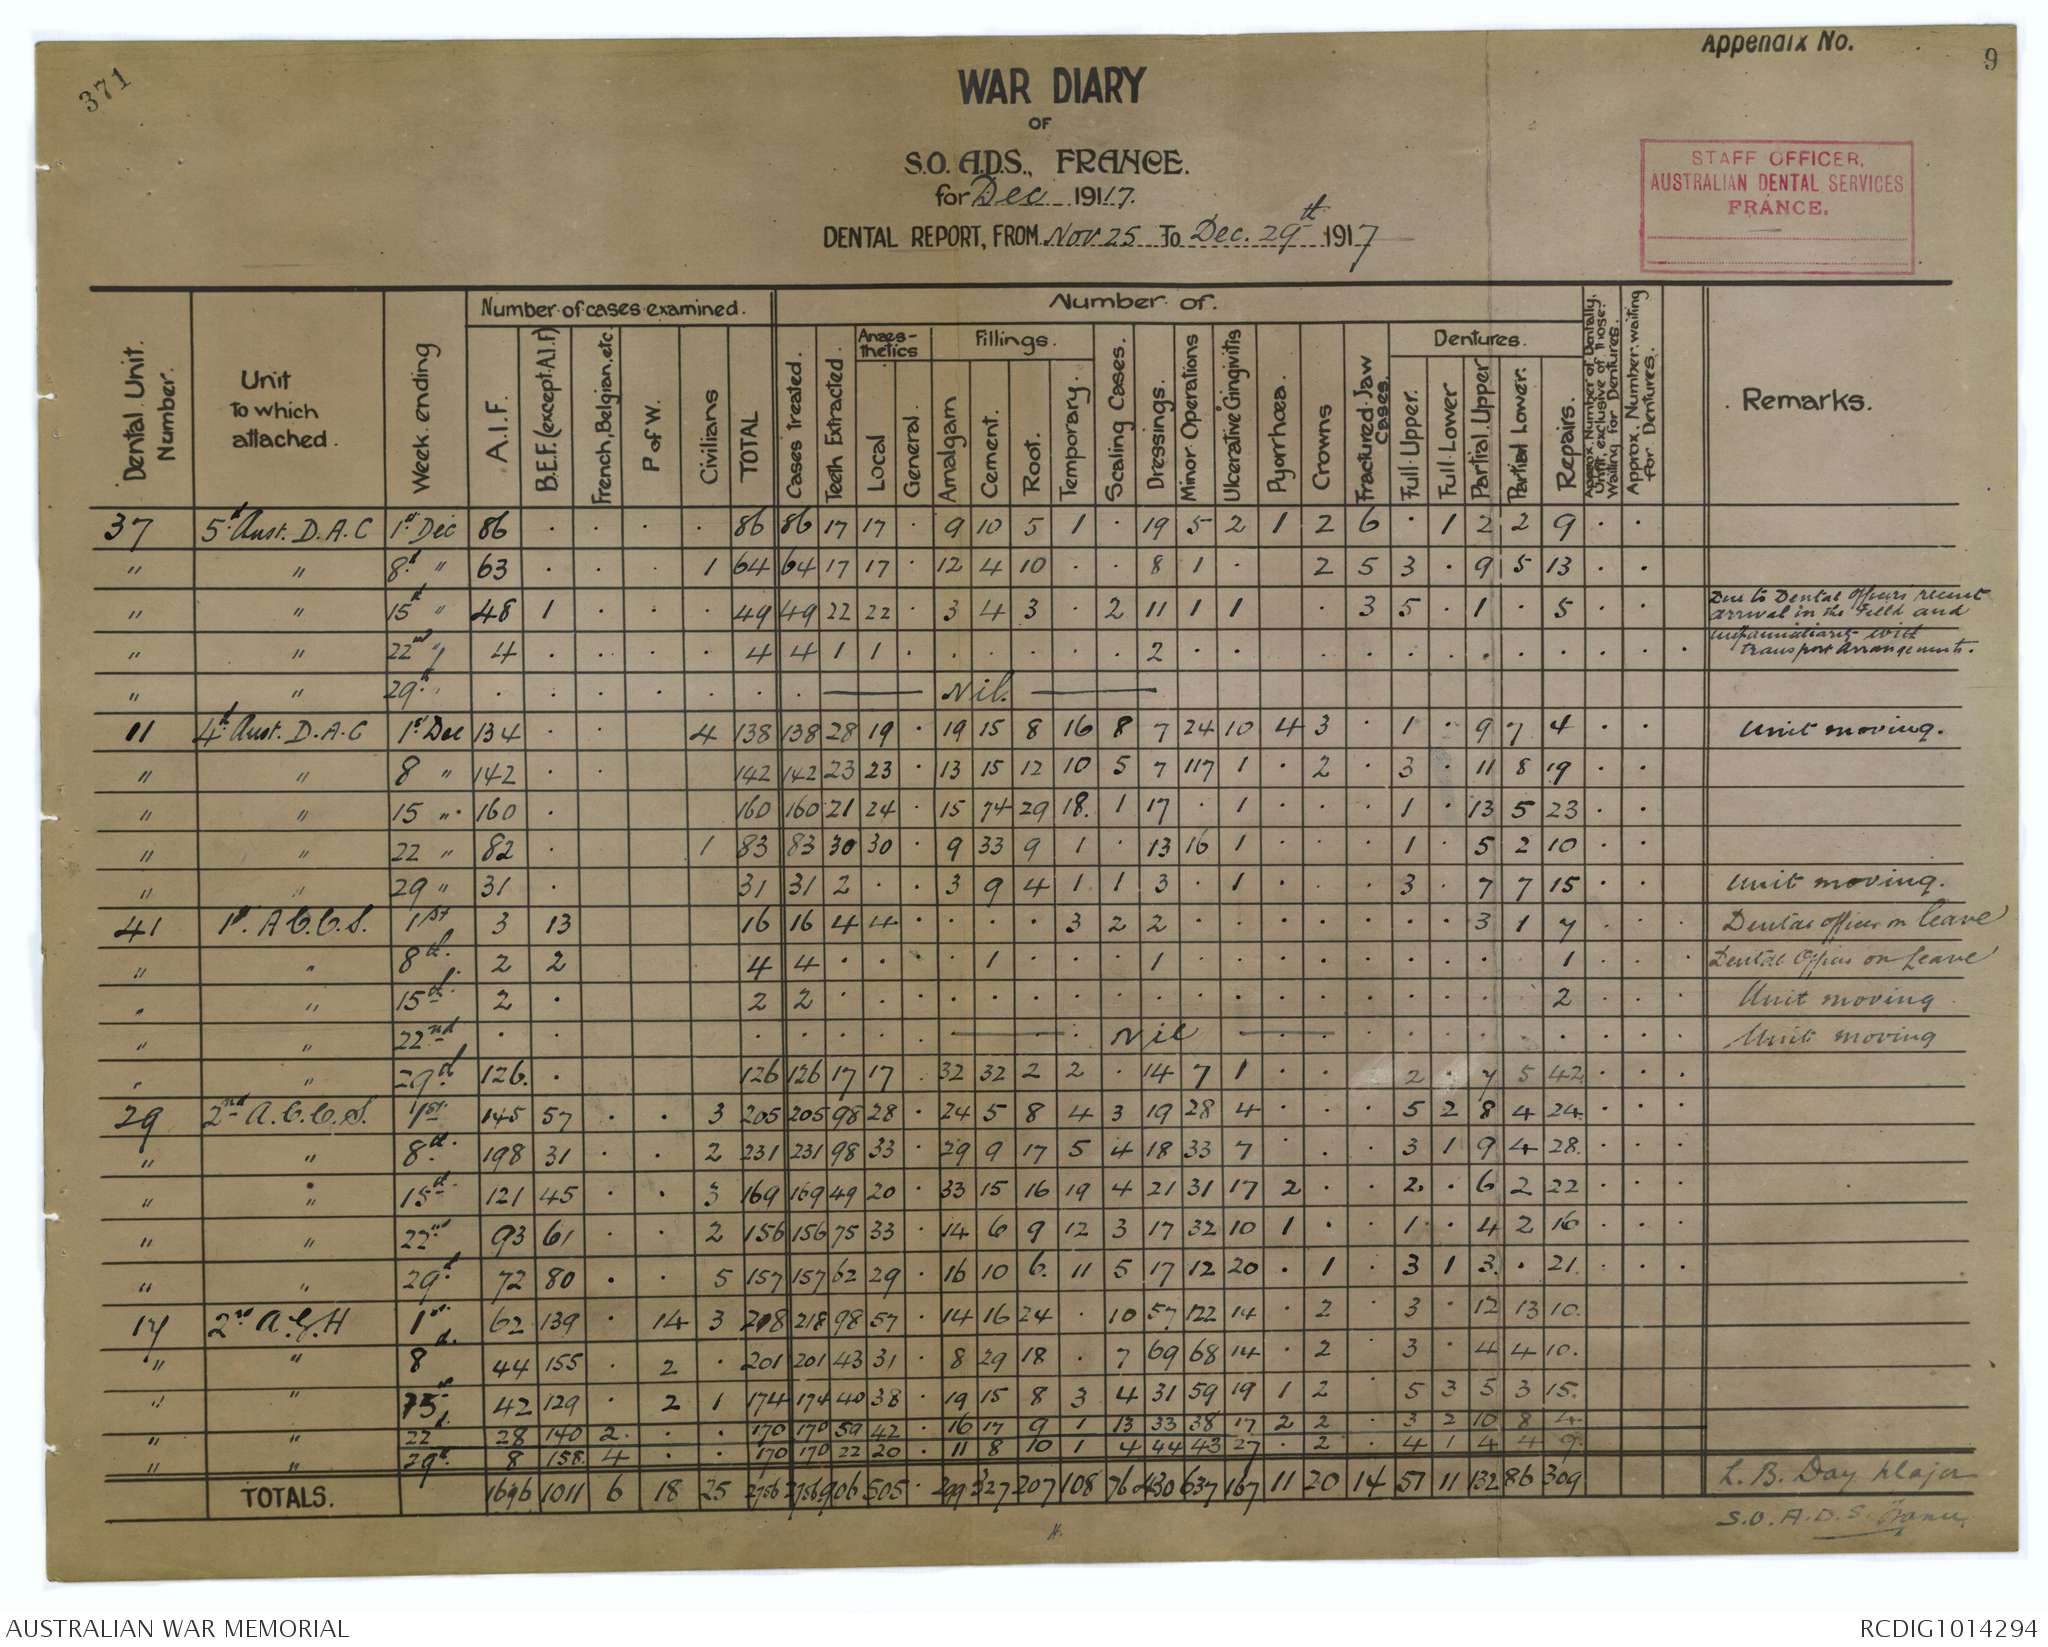 371
Appendix No.
9
WAR DIARY
OF
S.O. A.D.S., FRANCE.
for Dec 1917.
DENTAL REPORT, FROM Nov 25 To Dec. 29th 1917
STAFF OFFICER,
AUSTRALIAN DENTAL SERVICES
FRANCE.
Number of cases examined.
Number of.
Dental Unit Number.
Unit to which attached.
Week ending
A.I.F.
B.E.F. (except A.I.F)
French, Belgian, etc.
P of W.
Civilians
TOTAL
Cases Treated.
Teeth Extracted.
Anaes-thetics
Local
General.
Fillings.
Amalgam
Cement.
Root.
Temporary.
Scaling Cases.
Dressings.
Minor Operations
Ulcerative Gingivitis
Pyorrhœa.
Crowns
Fractured Jaw Cases.
Dentures.
Full Upper.
Full Lower
Partial Upper
Partial Lower.
Repairs.
Approx. Number of Dentally Unfit, exclusive of those Waiting for Dentures.
Approx. Number waiting for Dentures.
Remarks.
37 5th Aust. D.A.C 1st Dec 86 . . . . 86 86 17 17 . 9 10 5 1 . 19 5 2 1 2 6 . 1 2 2 9 . .
" " 8th " 63 . . . 1 64 64 17 17 . 12 4 10 . . 8 1 . 2 5 3 . 9 5 13 . .
" " 15th " 48 1 . . . 49 49 22 22 . 3 4 3 . 2 11 1 1 . 3 5 . 1 . 5 . . Due to Dental Officers recent arrival in the Field and
" " 22nd " 4 . . . . 4 4 1 1 . . . . . . 2 . . . . . . . . . . . . . unfamiliarity with transport arrangements.
" " 29th " . . . . . . . Nil.
11 4th Aust. D.A.C 1st Dec 134 . . 4 138 138 28 19 . 19 15 8 16 8 7 24 10 4 3 . 1 . 9 7 4 . . Unit moving.
" " 8 " 142 . . 142 142 23 23 . 13 15 12 10 5 7 117 1 . 2 . 3 . 11 8 19 . .
" " 15 " 160 . 160 160 21 24 . 15 74 29 18. 1 17 . 1 . . . 1 . 13 5 23 . .
" " 22 " 82 . 1 83 83 30 30 . 9 33 9 1 . 13 16 1 . . . 1 . 5 2 10 . .
" " 29 " 31 . 31 31 2 . . 3 9 4 1 1 3 . 1 . . . 3 . 7 7 15 . . Unit moving.
41 1st. A.C.C.S. 1st 3 13 16 16 4 4 . . . . 3 2 2 . . . . . . . 3 1 7 . . . Dental officer on leave
" " 8th. 2 2 4 4 . . . . 1 . . . 1 . . . . . . . . . 1 . . . Dental Officer on Leave
" " 15th. 2 . 2 2 . . . . . . . . . . . . . . . . . . 2 . . . Unit moving
" " 22nd . . . . . . . Nil . . . . . . . . . Unit moving
" " 29th 126. . 126 126 17 17 . 32 32 2 2 . 14 7 1 . . . 2 . 7 5 42 . . .
29 2nd A.C.C.S. 1st. 145 57 . . 3 205 205 98 28 . 24 5 8 4 3 19 28 4 . . . 5 2 8 4 24 . . .
" " 8th. 198 31 . . 2 231 231 98 33 . 29 9 17 5 4 18 33 7 . . 3 1 9 4 28. . . .
" " 15th. 121 45 . . 3 169 169 49 20 . 33 15 16 19 4 21 31 17 2 . . 2. . 6 2 22 . . .
" " 22nd 93 61 . . 2 156 156 75 33 . 14 6 9 12 3 17 32 10 1 . . 1 . 4 2 16 . . .
" " 29th 72 80 . . 5 157 157 62 29 . 16 10 6. 11 5 17 12 20 . 1 . 3 1 3. . 21. . . .
17 2nd A.G.H 1st. 62 139 . 14 3 218 218 98 57 . 14 16 24 . 10 57 122 14 . 2 . 3 . 12 13 10.
" " 8th. 44 155 . 2 . 201 201 43 31 . 8 29 18 . 7 69 68 14 . 2 3 . 4 4 10.
" " 15th 42 129 . 2 1 174 174 40 38 . 19 15 8 3 4 31 59 19 1 2 . 5 3 5 3 15.
" " 22d. 28 140 2. . . 170 170 59 42 . 16 17 9 1 13 33 38 17 2 2 . 3 2 10 8 4.
" " 29th. 8 158. 4 . . 170 170 22 20 . 11 8 10 1 4 44 43 27 . 2 . 4 1 4 4 9.
TOTALS. 1696 1011 6 18 25 2756 2756 906 505 . 299 327 207 108 76 430 637 167 11 20 14 57 11 132 86 309
L. B. Day Major
S.O. A.D.S. France.
AUSTRALIAN WAR MEMORIAL
RCDIG1014294